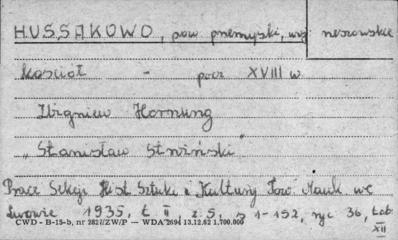 HUSSAKOWO, pow. przemyski, woj. rzeszowskie
Kościół - pocz XVIII w.
Zbigniew Hornung
„Stanisław Stroiński"
Prace Sekcji Hist. Sztuki i Kultury Tow. Nauk we
Lwowie 1935, t. II z. 5, s 1-152, ryc 36, tab
XII
CWD - B-15-b, nr 2827/ZW/P — WDA 2694 13.12.62 1.700.000